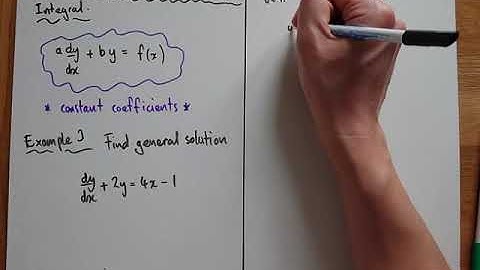 Integral.
a dy/dx + by = f(x)
* constant coefficients *
Example 3 Find general solution
dy/dx + 2y = 4x - 1